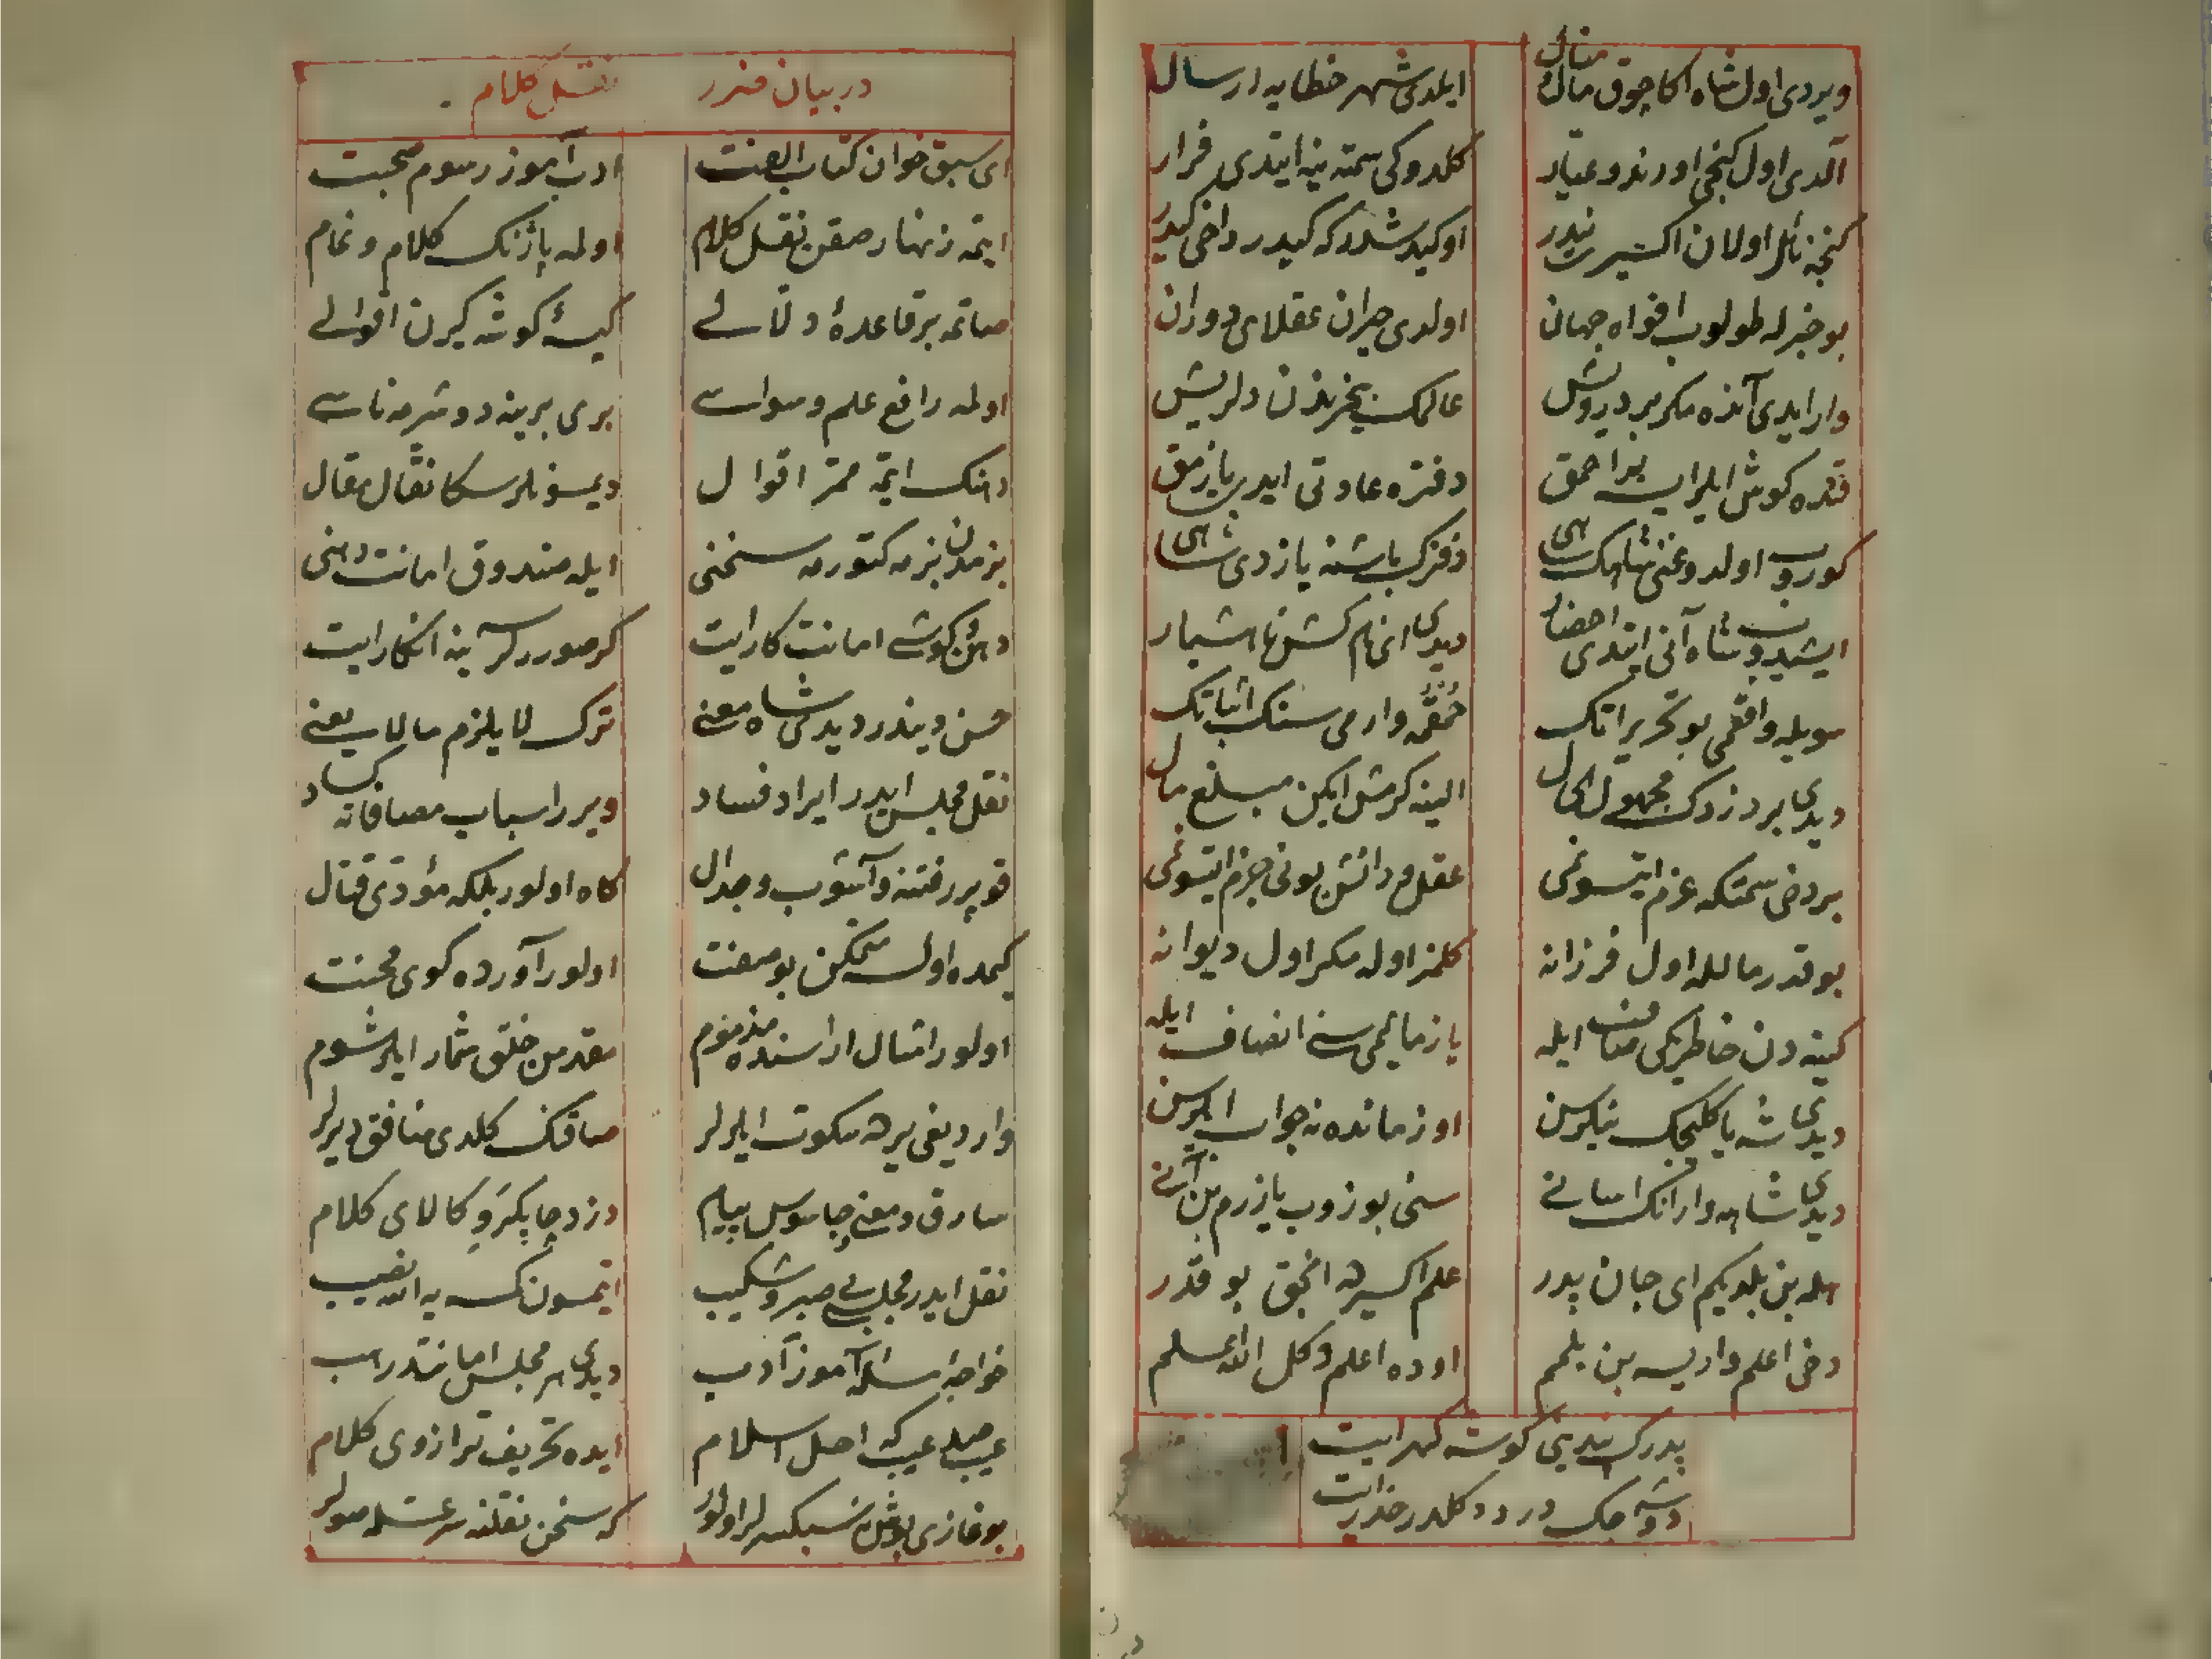 ویردی اول شاه اکا چوق مال منال ایلدی شهر خطایه ارسال
آلدی اول کنجی اورند و عیار کلدوکی سمته ینه ایتدی فرار
کنجه نائل اولان اکسیری نیدر اوکیدشدر که کیدر داخی کیدر
بو خبرله طولوب افواه جهان اولدی حیران عقلای دوران
وار ایدی آنده مکر بر درویش عالمک بیخبرندن دلریش
قنده کوش ایلر ایسه بر احمق دفتره عادتی ایدی یازمق
کوروب اولدوغنی شاهک ساهی دفترک باشنه یازدی شاهی
ایشیدوب شاه آنی ایتدی احضار دیدی ای نام کش نا هشیار
سویله واقعمی بو تحریر انک حمقمه وارمی سنک اثباتک
دیدی بر دزدک مجهول الحال الینه کرمش ایکن مبلغ مال
بر دخی سمتکه عزم ایتسونمی عقل و دانش بونی جزم ایتسونمی
بو قدر مالله اول فرزانه کلمز اوله مکر اول دیوانه
کینه دن خاطریکی صاف ایله یازمایلمی سنی انصاف ایله
دیدی شه یا کلیجک نیلرسن او زمانده نه جواب ایلرسن
دیدی شاهه وار انک اسانی سنی بوزوب یازرم بن آنی
هله بن بلدیکم ای جان پدر علم اکسیرده انجق بو قدر
دخی اعلم وار یسه بن بلمم اوده اعلم و کل الله اعلم
پدرک پندینی کوشه کهر ایت
دوشه جک درد کلدر حذر ایت
در بیان ضرر نقل کلام
ای سبق خوان کتاب الفت ادب آموز رسوم صحبت
ایتمه زنهار صقن نقل کلام اوله پاژنک کلام و نمام
صاتمه بر قاعدهٔ دلالی کیسهٔ کوشه کیرن اقوالی
اوله رافع علم وسواسی بری برینه دوشرمه ناسی
دهنک ایتمه ممر اقوال دیمسونلر سکا نقال مقال
بزمدن بزمه کتورمه سخنی ایله صندوق امانت دهنی
دهن کوشی امانتکار ایت کر صوررلرسه ینه انکار ایت
حسن دیندر دیدی شاه معنی ترک لا یلزم ما لا یعنی
نقل مجلس ایدر ایراد فساد ویرر اسباب مصافاته کساد
قوپرر فتنه و آشوب و جدال کاه اولور بلکه مؤدی قتال
کیمده اولسه متمکن بو صفت اولور آورده کوی محنت
اولور امثال اراسنده مذموم مقدمن خلق شمار ایلر شوم
واردیغی یرده سکوت ایلرلر صاقنک کلدی منافق دیرلر
سارق و معنی جاسوس پیام دزد چاپکرو کالای کلام
نقل ایدر مجلسی بی صبر و شکیب ایتمسون کمسه یه الله نصیب
خواجهٔ مسئله آموز ادب دیدی هر مجلس امانتدر هب
عیبدر عیب که اهل اسلام ایده تحریف ترازوی کلام
بو غمازی بوش سبکسرلر اولور که سخن نقلنه سرعتله صولر